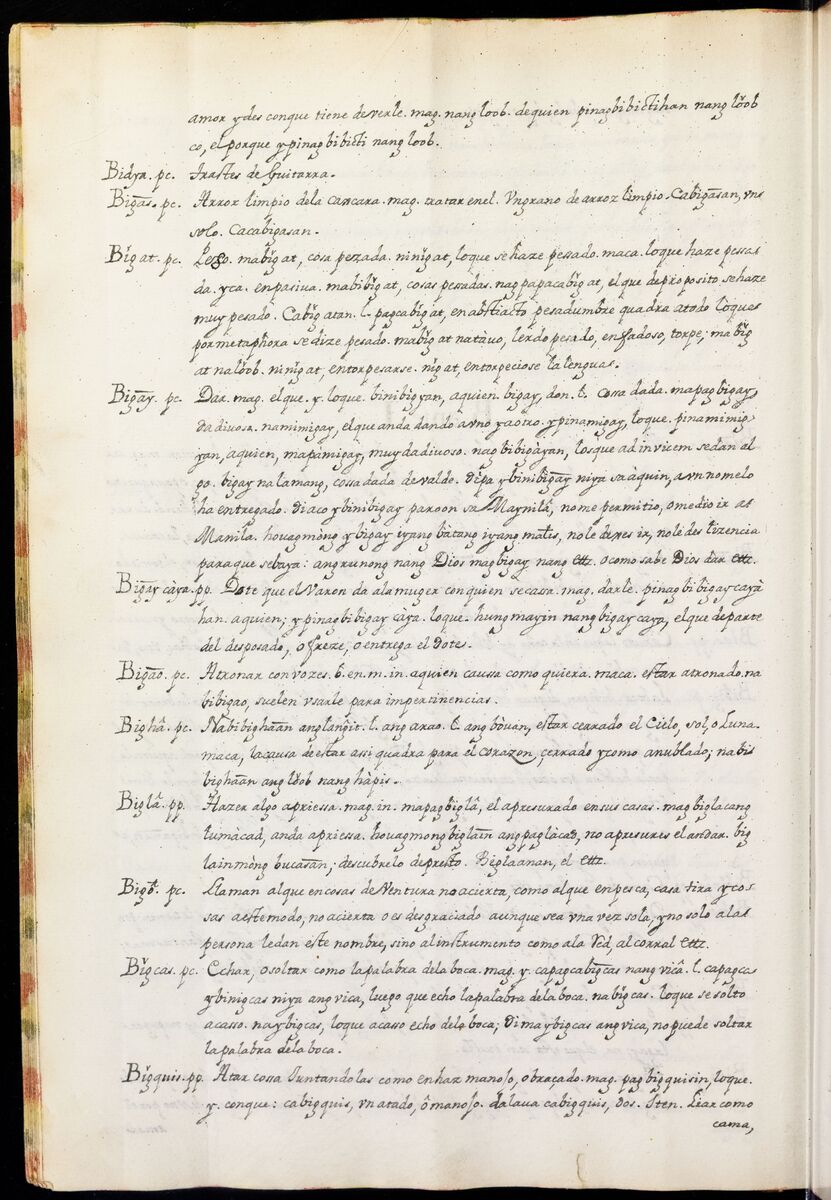 amor y des conque tiene de verle. mag. nang loob. de quien pinagbibictihan nang lŏob
co, el porque y pinagbibicti nang loob.
Bidya. pc. trastes de Guitarra.
Bigãs. pc. Arroz limpio dela cascara. mag. tratar enel. Vn grano de arroz limpio. Cabigãsan, vn
solo. Cacabigasan.
Bĭgat. pc. Pesso. mabĭgat, cosa pezada. ninĭgat, loque se haze pessado. maca. loque haze pessa
da. y ca. en pasiua. mabibĭgat, cosas pessadas. nagpapacabĭgat, el que de proposito se haze
muy pesado. Cabĭgatan. l. pagcabĭgat, en abstracto pesadumbre quadra a todo loque
por metaphora se dize pesado. mabĭgat natàuo, lerdo pesado, enfadoso, torpe; mabĭg
at na lŏob. ninĭgat, entorpesarse. nĭgat, entorpeciose la lengua.
Bigãy. pc. Dar. mag. el que. y. loque. binibĭgyan, aquien. bigay, don. l. cossa dada. mapagbigay,
dadiuosa. namimigay, el que anda dando a vno y a otro. y pinamigay, loque. pinamimig
yan, aquien, mapàmigay, muy dadiuoso. nagbibigãyan, los que ad invicem se dan al
go. bigay na lamang, cossa dada de valde. dĭpa y binibigãy niya sa àquin, aun no melo
ha entregado. di aco y binibigay paroon sa Maynilà, no me permitio, o me dio ir a
Manila. houag mòng y bigay iyang bàtang iyang malis, no le dexes ir, no le des lizencia
para que se vaya: ang runong nang Dios magbigay nang ettz. o como sabe Dios dar ettz.
Bigãy càya. pp. Dote que el Varon da ala muger con quien se cassa. mag. darle. pinagbibigay cayà
han. a quien; y pinagbibigay càya. loque. hungmayin nang bigay caya, el que de parte
del desposado, ofreze, o entrega el dote.
Bigão. pc. Atronar con vozes. l. en. m. in. aquien caussa como quiera. maca. estar atronado. na
bibigao, suelen vsarle para impertinencias.
Bighâ. pc. Nabibighãan ang langit. l. ang arao. l. ang bòuan, estar cerrado el Cielo, sol, o Luna.
maca, la causa de estar assi quadra para el corazon, cerrado y como anublado; nabi
bighãan ang lŏob nang hàpis.
Biglâ. pp. Hazer algo apriessa. mag. in. mapagbĭglâ, el apresurado en sus casas. magbiglacang
lumàcad, anda apriessa. houag mong biglãin ang paglàcad, no apresures el andar. big
lain mòng bucasãn; descubrelo de presto. Biglaanan, el ettz.
pc. Llaman al que en cosas de Ventura no acierta, como al que en pesca, casa tira y co
sas a este modo, no acierta o es desgraciado aunque sea vna vez sola, y no solo ala
persona le dan este nombre, sino al instrumento como ala red, al corral ettz.
Bĭgcas. pc. Echar, o soltar como la palabra dela boca. mag. y. capagcabĭgcas nang vicâ. l. capagca
y binigcas niya ang vica, luego que echo la palabra dela boca. nabĭgcas. loque se solto
acasso. naybigcas, loque acasso echo dela boca; di maybigcas ang vica, no puede soltar
la palabra dela boca.
Bĭgquis. pp. Atar cossa Juntandolas como en haz manojo, o braçado. mag. pagbigquisin, loque.
y. conque: cabigquis, vn atado, ô manojo. dalaua cabigquis, dos. Iten. Liar como
cama,